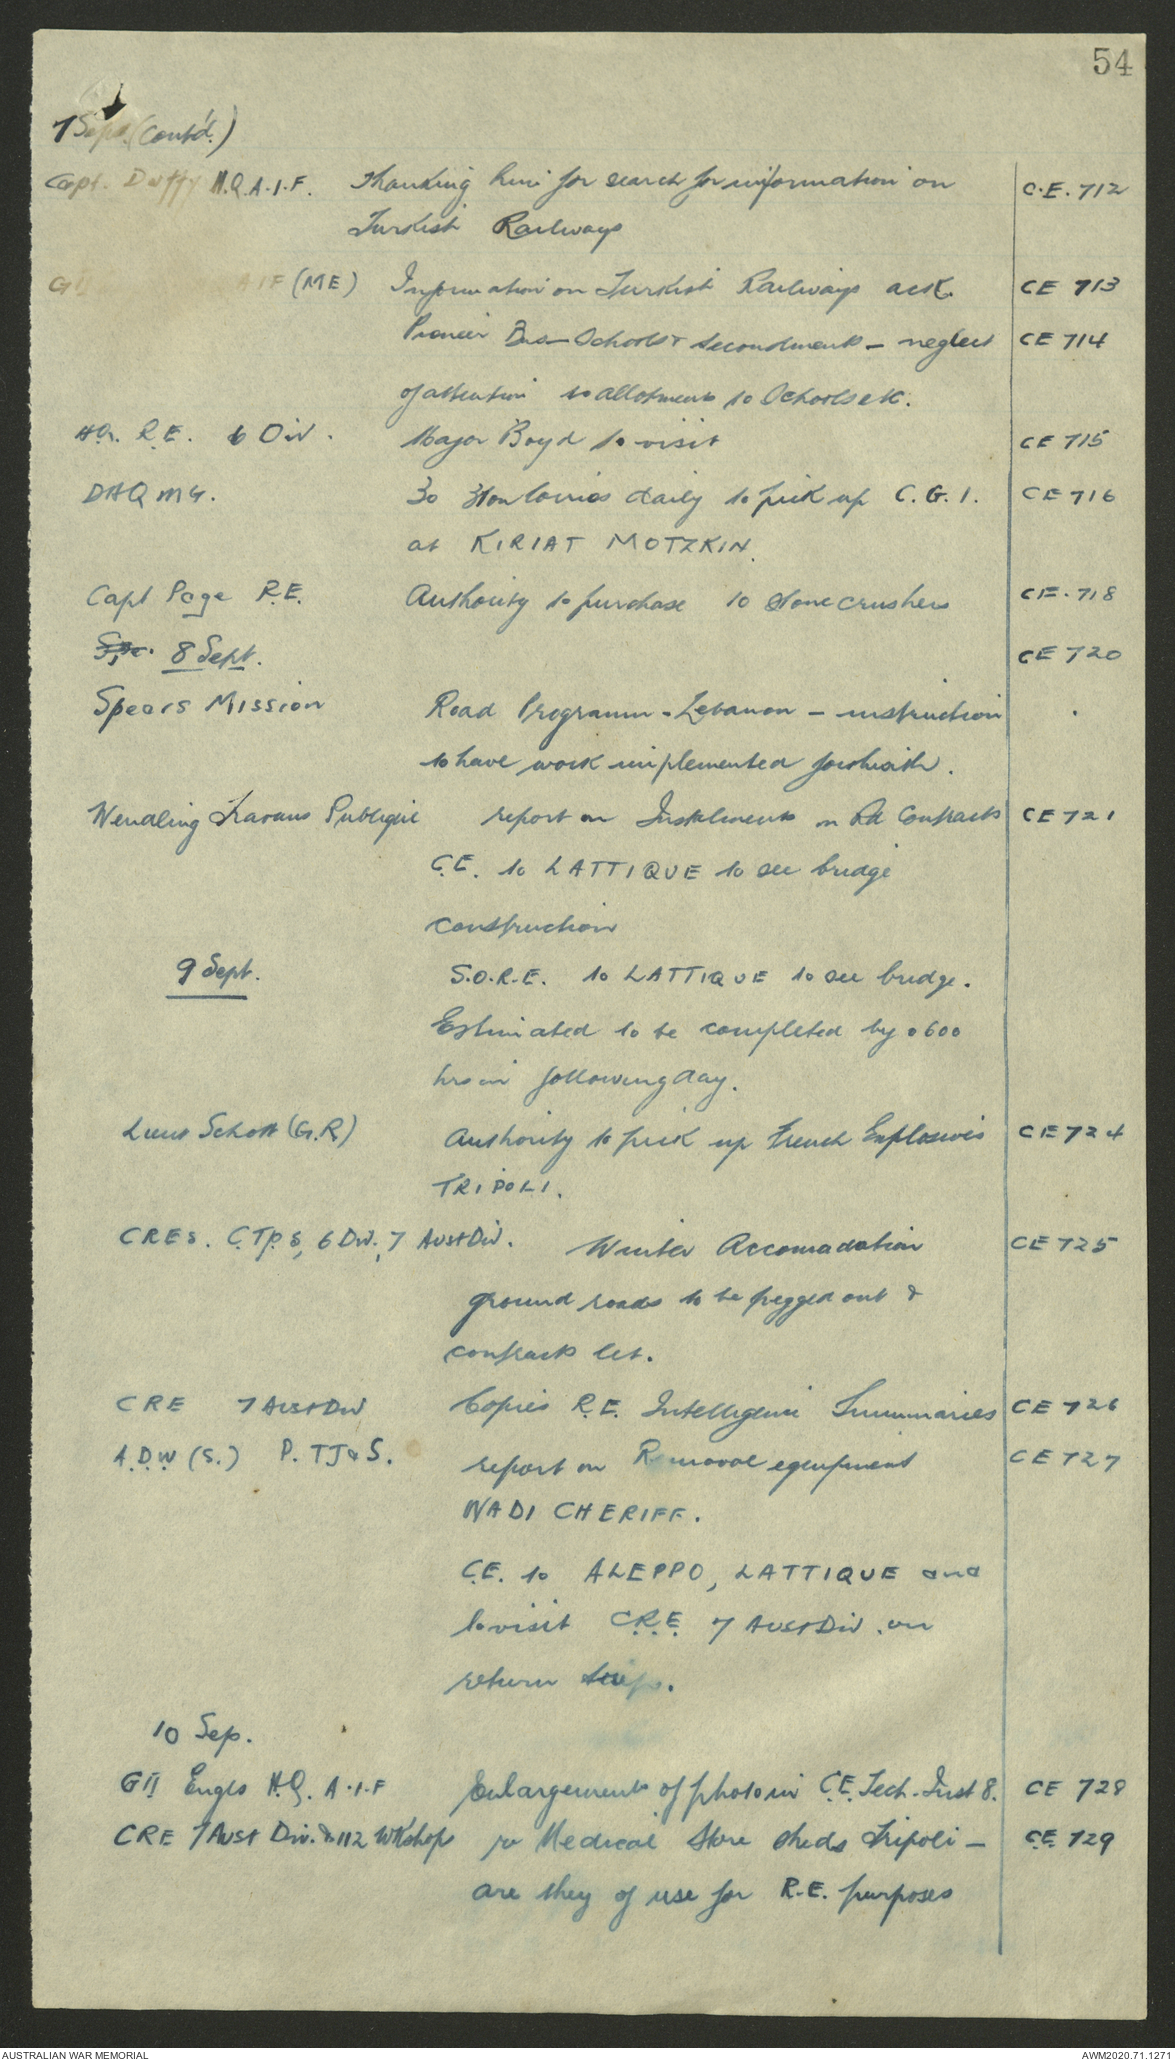 54
7 Sept. (Contd.)
Capt. Duffy H.Q.A.I.F. Thanking him for search for information on C.E. 712
Turkish Railways
GII AIF (ME) Information on Turkish Railways ack. CE 713
Pioneer Bns - Schools & secondments - neglect CE 714
of attention to allotments to Schools etc.
HQ. R.E. 6 Div. Major Boyd to visit CE 715
DAQMG. 30 3 ton lorries daily to pick up C.G.I. CE 716
at KIRIAT MOTZKIN.
Capt Page R.E. Authority to purchase 10 stone crushers CE. 718
8 Sept. CE 720
Spears Mission Road Programm - Lebanon - instruction
to have work implemented forthwith.
Wendling Travaus Publique report on Instalments on Rd Contracts CE 721
C.E. to LATTIQUE to see bridge
construction
9 Sept. S.O.R.E. to LATTIQUE to see bridge.
Estimated to be completed by 0600
hrs on following day.
Lieut Schott (G.R) Authority to pick up French Explosives CE 724
TRIPOLI.
CREs. C.Tps, 6 Div., 7 Aust Div. Winter Accomadation CE 725
ground roads to be pegged out &
contracts let.
CRE 7 Aust Div Copies R.E. Intelligence Summaries CE 726
A.D.W (S.) P. TJ & S. report on Removal equipment CE 727
WADI CHERIFF.
C.E. to ALEPPO, LATTIQUE and
to visit C.R.E. 7 Aust Div. on
return trip.
10 Sep.
GII Engrs H.Q. A.I.F Enlargements of photo in C.E. Tech. Inst 8. CE 728
CRE 7 Aust Div. & 112 Wkshops re Medical Store sheds Tripoli - CE 729
are they of use for R.E. purposes
AUSTRALIAN WAR MEMORIAL AWM2020.71.1271